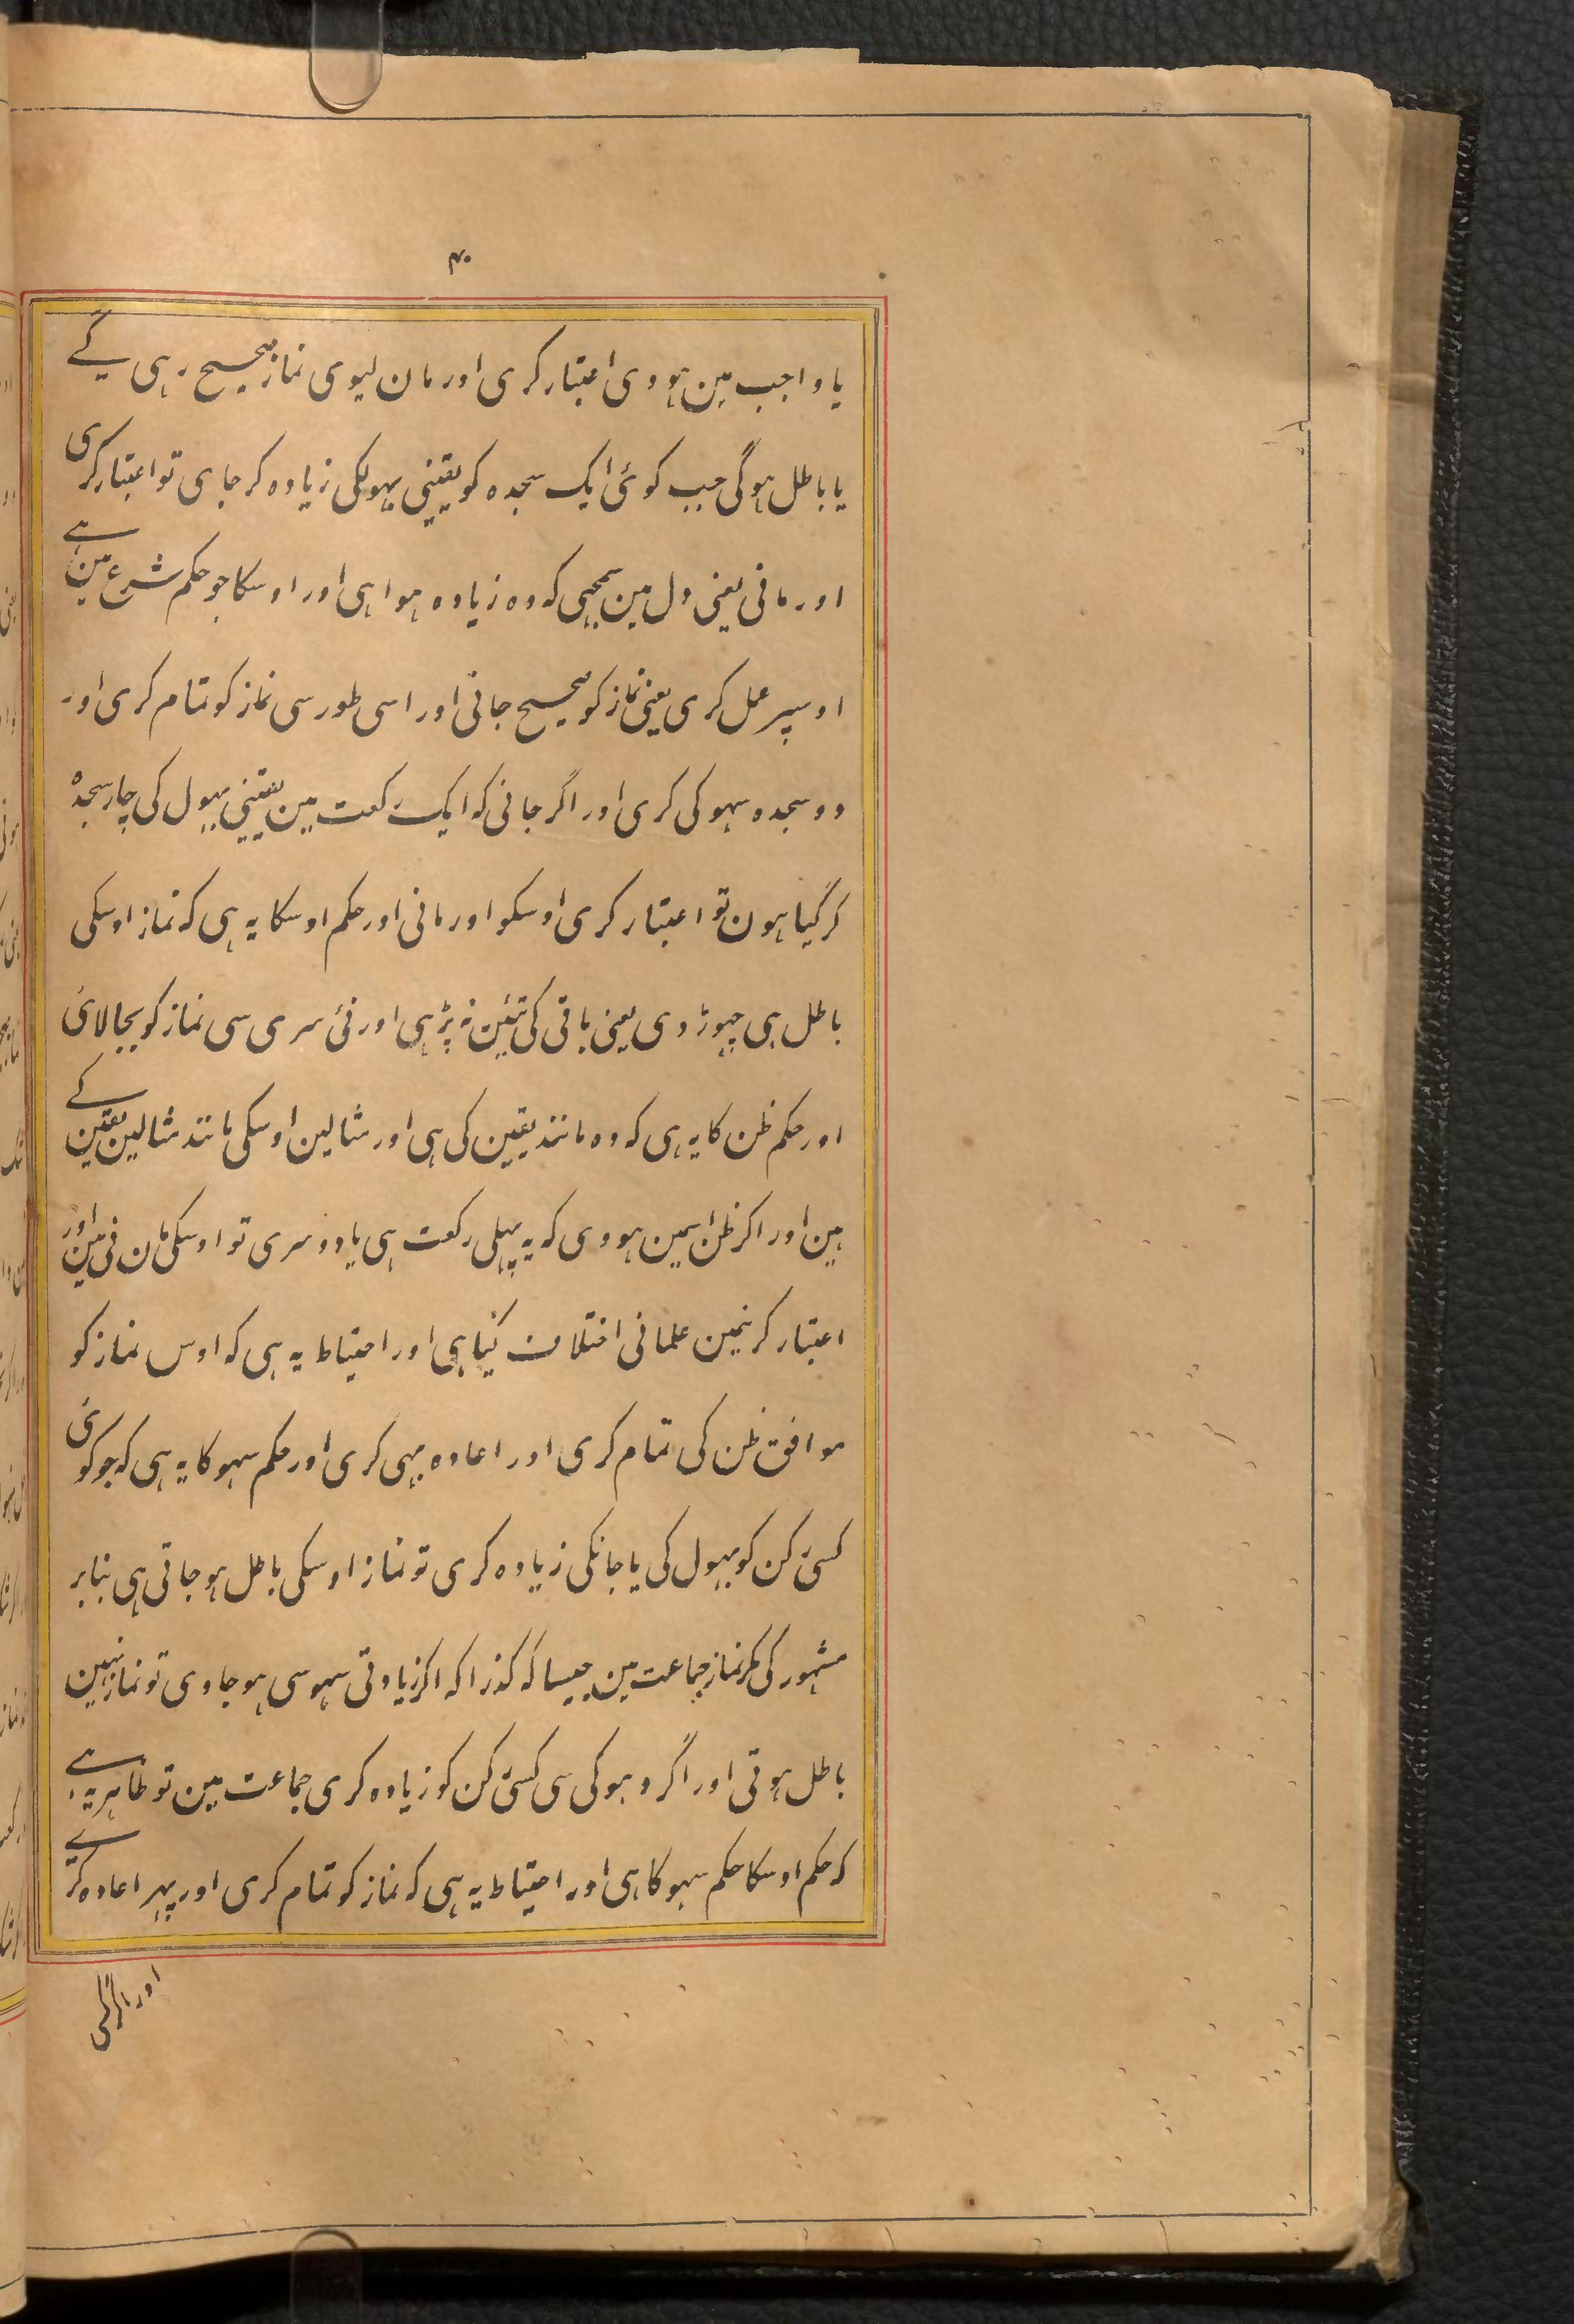 ۴۰
یا واجب مین ہووی اعتبار کری اور مان لیوی نماز صحیح رہی گے
یا باطل ہوگی جب کوئی ایک سجدہ کو یقینی بہولکی زیادہ کر جاوی تو اعتبار کری
اور مانی یعنی دل مین سمجہی کہ وہ زیادہ ہوا ہی اور اوسکا جو حکم شرع مین ہے
اوسپر عمل کری یعنی نماز کو صحیح جانی اور اسی طور سی نماز کو تمام کری اور
دو سجدہ سہو کی کری اور اگر جانی کہ ایک رکعت مین یقینی بہول کی چار سجدہ
کر گیا ہون تو اعتبار کری اوسکو اور مانی اور حکم اوسکا یہ ہی کہ نماز اوسکی
باطل ہی چہوڑ دی یعنی باقی کی تئین نہ پڑہی اور نئی سری سی نماز کو بجا لائی
اور حکم ظن کا یہ ہی کہ وہ مانند یقین کی ہی اور مثالین اوسکی مانند مثالین یقین کے
ہین اور اکر ظن اسمین ہووی کہ یہ پہلی رکعت ہی یا دوسری تو اوسکی مان نی مین اور
اعتبار کرنیمین علمانی اختلاف کیا ہی اور احتیاط یہ ہی کہ اوس نماز کو
موافق ظن کی تمام کری اور اعادہ بہی کری اور حکم سہو کا یہ ہی کہ جو کوئی
کسی رکن کو بہول کی یا جانکی زیادہ کری تو نماز اوسکی باطل ہو جاتی ہی بنابر
مشہور کی مکر نماز جماعت مین جیسا کہ کذرا کہ اکر زیادتی سہو سی ہو جاوی تو نماز نہین
باطل ہوتی اور اگر دہوکی سی کسی رکن کو زیادہ کری جماعت مین تو ظاہر یہ ہے
کہ حکم اوسکا حکم سہو کا ہی اور احتیاط یہ ہی کہ نماز کو تمام کری اور پہر اعادہ کرے
اور اگر کسی